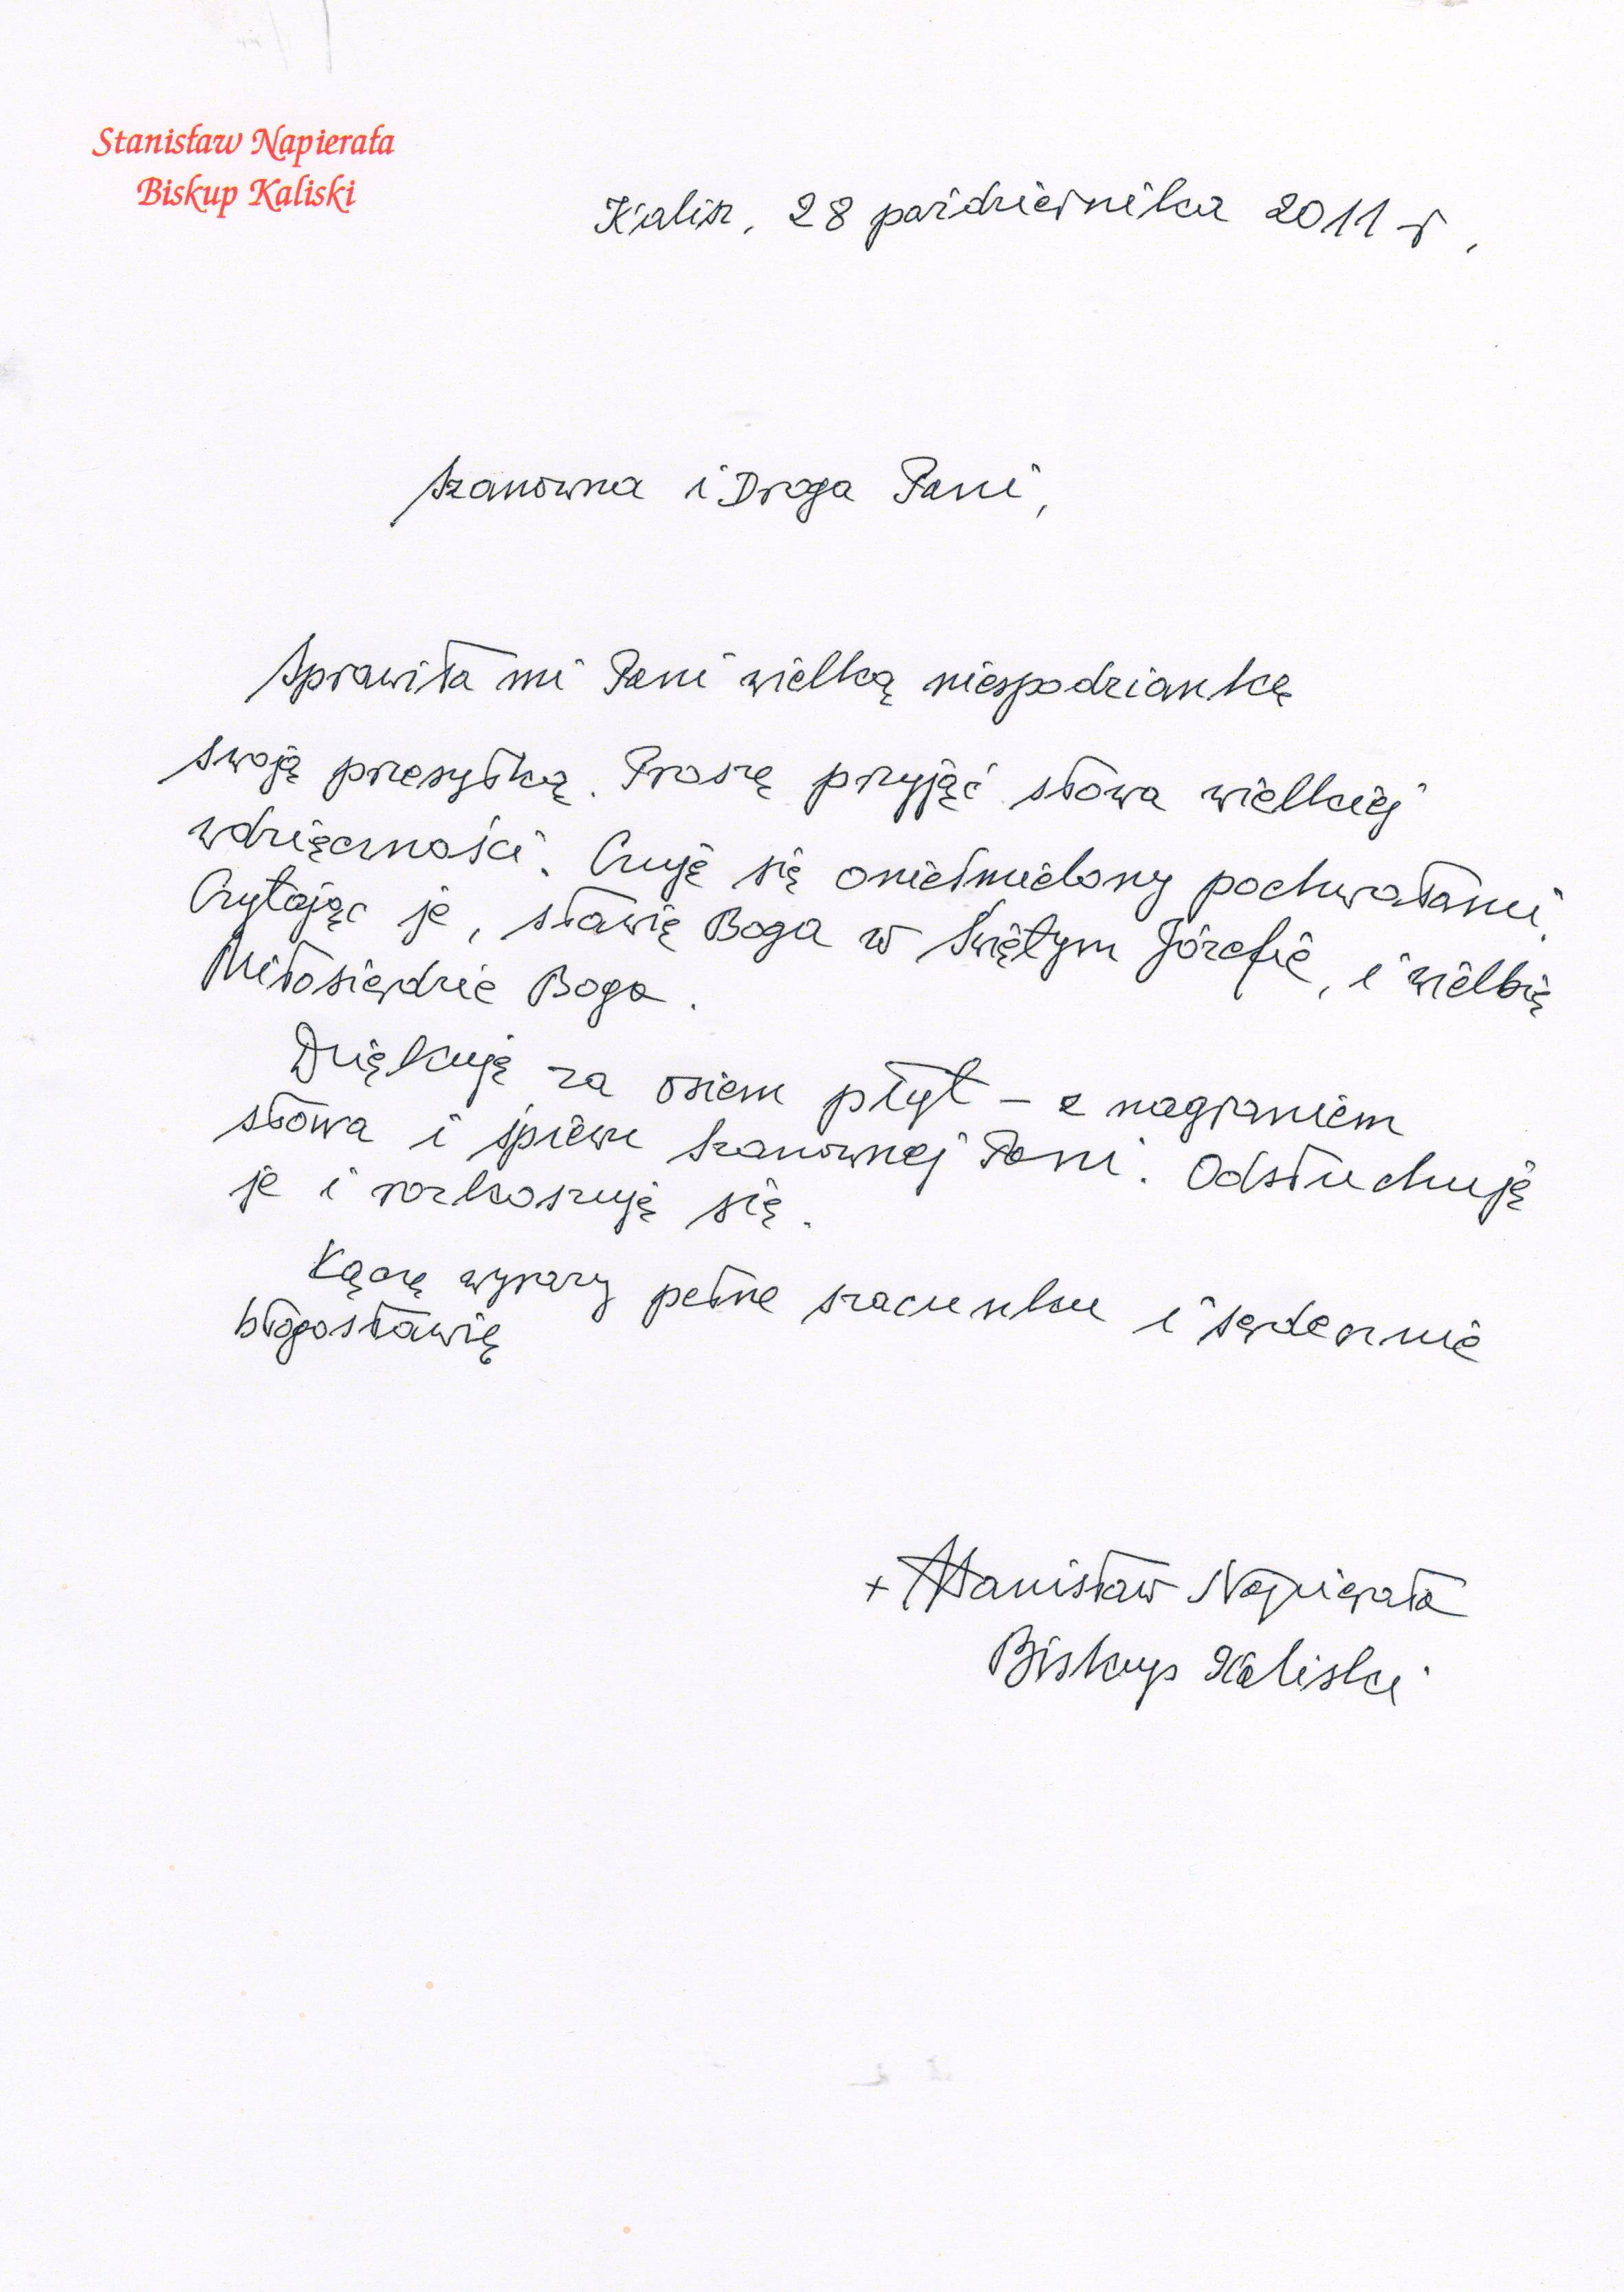 Stanisław Napierała
Biskup Kaliski
Kalisz, 28 października 2011 r.
Szanowna i Droga Pani,
Sprawiła mi Pani wielką niespodziankę
swoją przesyłką. Proszę przyjąć słowa wielkiej
wdzięczności. Czuję się onieśmielony pochwałami.
Czytając je, sławię Boga w Świętym Józefie, i wielbię
Miłosierdzie Boga.
Dziękuję za osiem płyt – z nagraniem
słowa i śpiewu Szanownej Pani. Odsłuchuję
je i rozkoszuję się.
Łączę wyrazy pełne szacunku i serdecznie
błogosławię
+ Stanisław Napierała
Biskup Kaliski